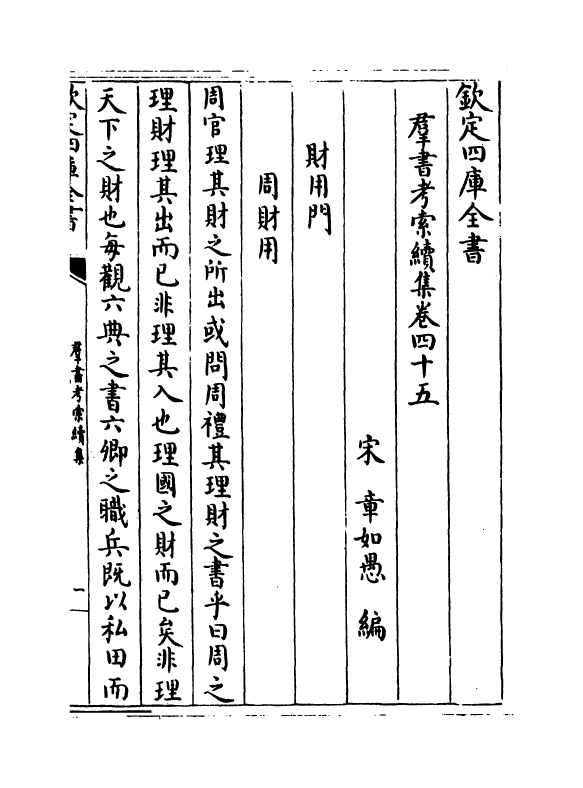 欽定四庫全書
羣書考索續集卷四十五
宋 章如愚 編
財用門
周財用
周官理其財之所出或問周禮其理財之書乎曰周之
理財理其出而已非理其入也理國之財而已矣非理
天下之財也每觀六典之書六卿之職兵既以私田而
欽定四庫全書
羣書考索續集
一